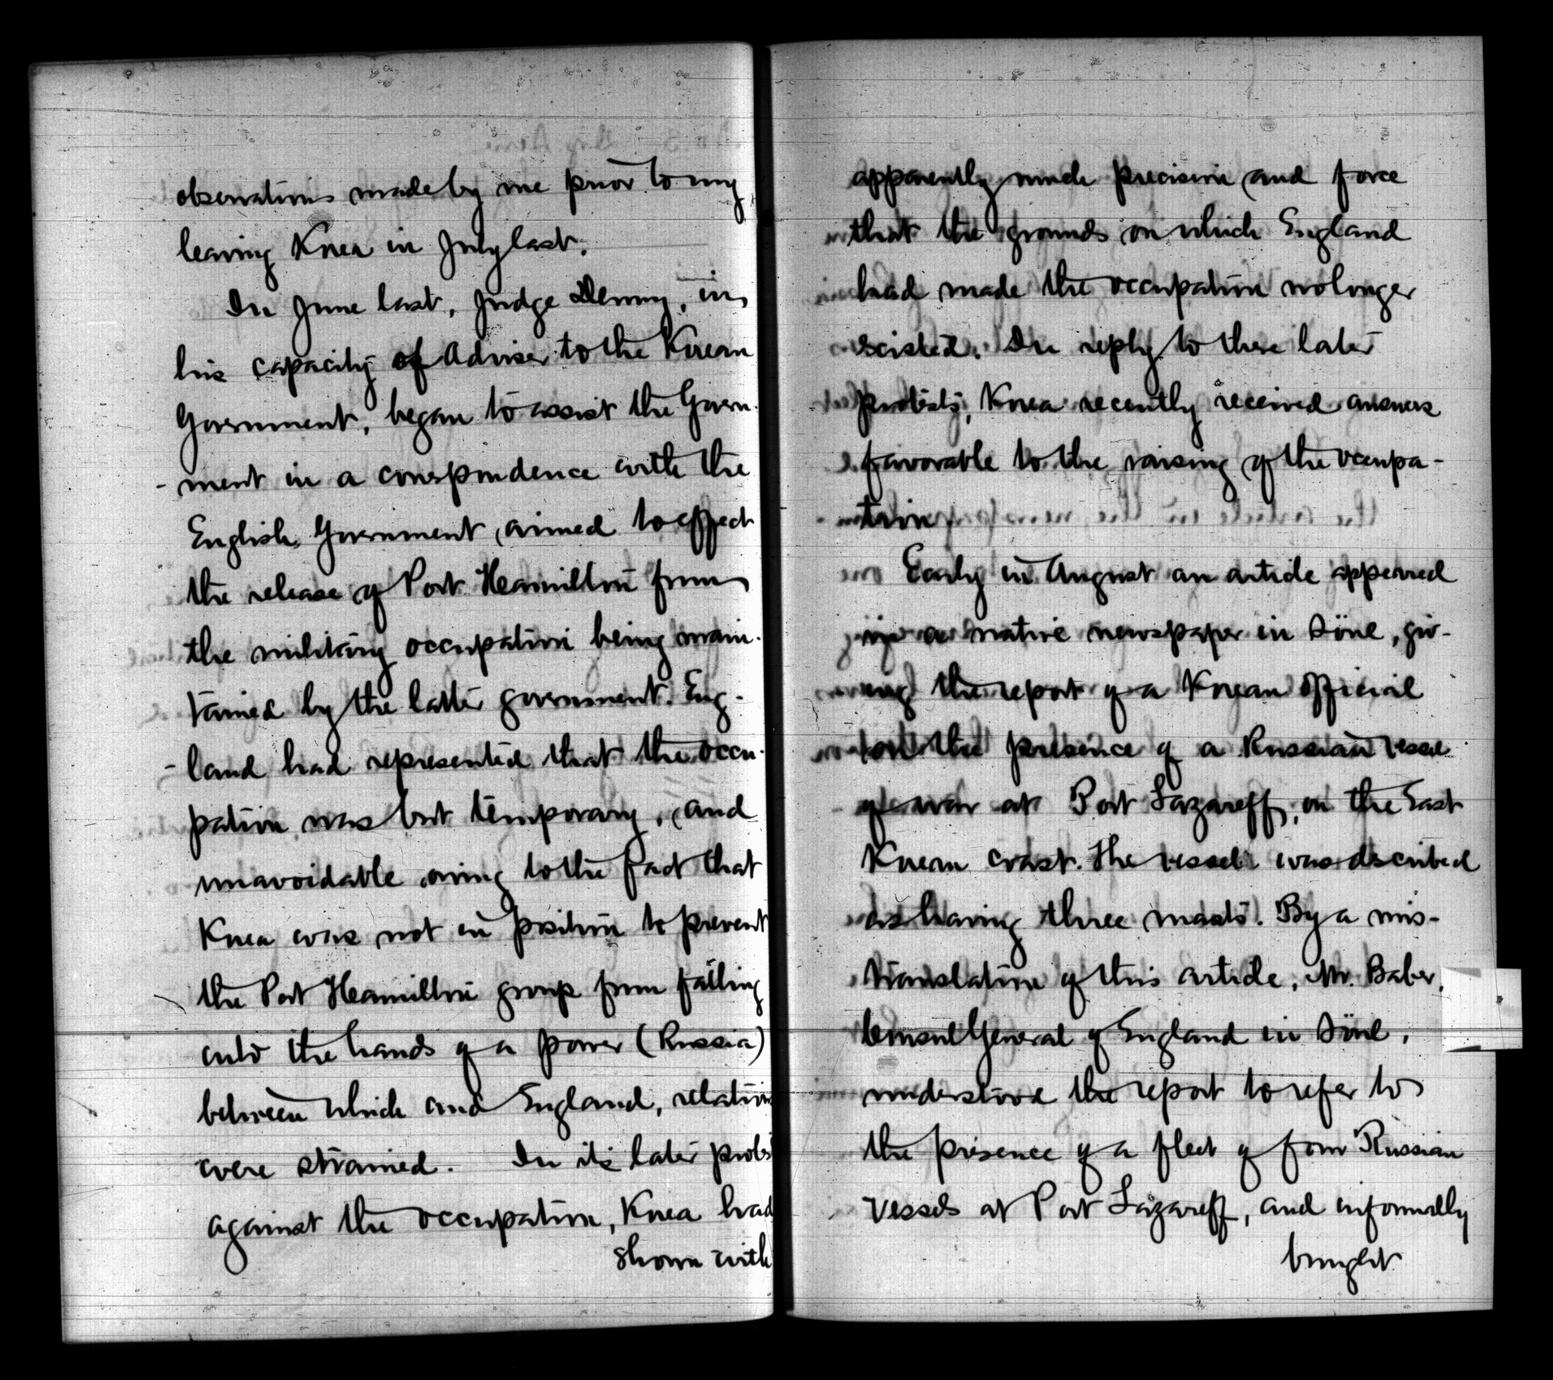 observations made by me prior to my
leaving Korea in July last.
In June last, Judge Denny, in
his capacity of Adviser to the Korean
Government, began to assist the Govern-
-ment in a correspondence with the
English Government, aimed to effect
the release of Port Hamilton from
the military occupation being main-
tained by the latter government. Eng-
-land had represented that the occu-
pation was but temporary, and
unavoidable owing to the fact that
Korea was not in position to prevent
the Port Hamilton group from falling
into the hands of a power (Russia)
between which and England, relations
were strained. In its later protests
against the occupation, Korea had
shown with
apparently much precision and force
that the grounds on which England
had made the occupation no longer
existed. In reply to these later
protests, Korea recently received answers
favorable to the raising of the occupa-
tion.
Early in August an article appeared
in a native newspaper in Söul, giv-
ing the report of a Korean official
on the presence of a Russian vessel
of war at Port Lazareff, on the East
Korean coast. The vessel was described
as having three masts. By a mis-
translation of this article, Mr. Baber,
Consul General of England in Söul,
understood the report to refer to
the presence of a fleet of four Russian
vessels at Port Lazareff, and informally
brought